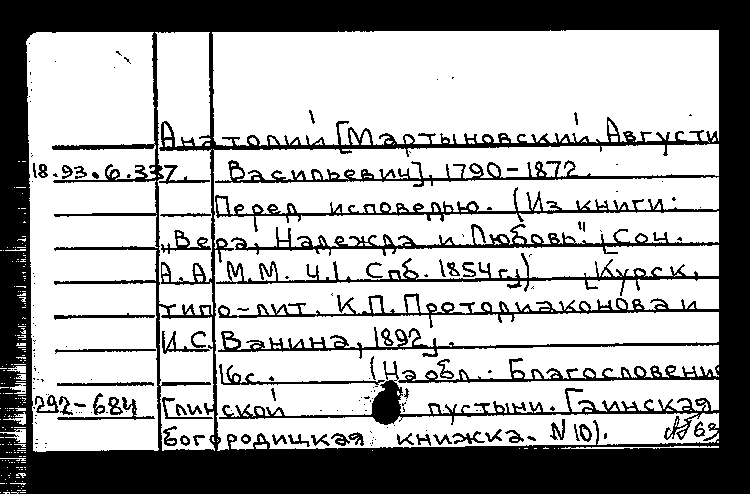 Анатолий [Мартыновский, Августи
18.93.6.337. Васильевич], 1790-1872.
Перед исповедью. (Из книги:
„Вера, Надежда и Любовь". [Соч.
А.А. М.М. Ч.1. Спб. 1854 г.]) [Курск,
типо-лит. К.П. Протодиаконова и
И.С. Ванина, 1892].
16с. (На обл.: Благословение
292-684 Глинской пустыни. Глинская
богородицкая книжка. N10).
63